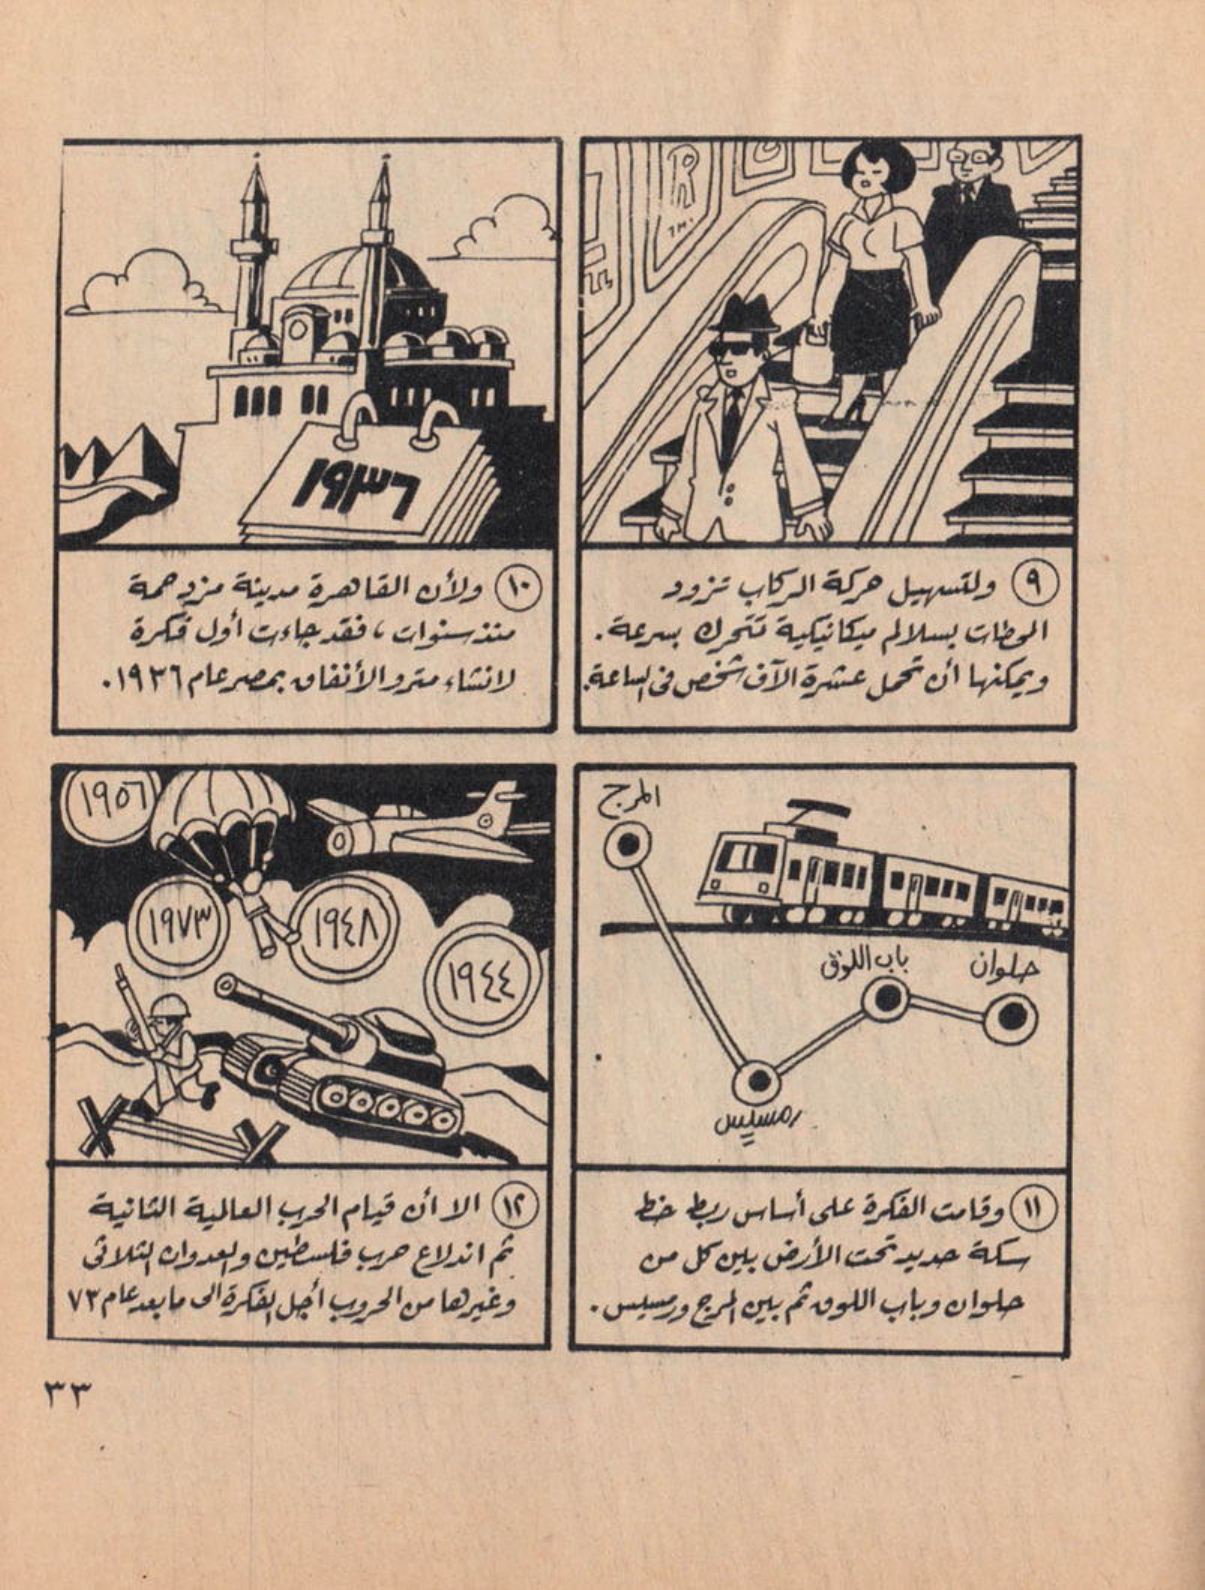 ٩ ولتسهيل حركة الركاب تزود
المحطات بسلالم ميكانيكية تتحرك بسرعة.
ويمكنها أن تحمل عشرة الآف شخص فى الساعة.
١٩٣٦
١٠ ولأن القاهرة مدينة مزدحمة
منذ سنوات، فقد جاءت أول فكرة
لانشاء مترو الأنفاق بمصر عام ١٩٣٦.
المرج
باب اللوق
حلوان
رمسيس
١١ وقامت الفكرة على أساس ربط خط
سكة حديد تحت الأرض بين كل من
حلوان وباب اللوق ثم بين المرج ورمسيس.
١٩٥٦
١٩٧٣
١٩٤٨
١٩٤٤
١٢ الا أن قيام الحرب العالمية الثانية
ثم اندلاع حرب فلسطين والعدوان الثلاثى
وغيرها من الحروب أجل الفكرة الى ما بعد عام ٧٣
٣٣